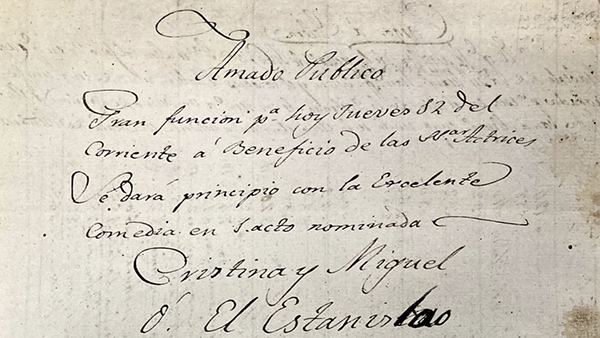 Amado Publico
Gran funcion pª hoy Jueves 12 del
Corriente á Beneficio de las Nªs Actrices
Se dará principio con la Excelente
Comedia en 1. acto nominada
Cristina y Miguel
ó. El Estanislao